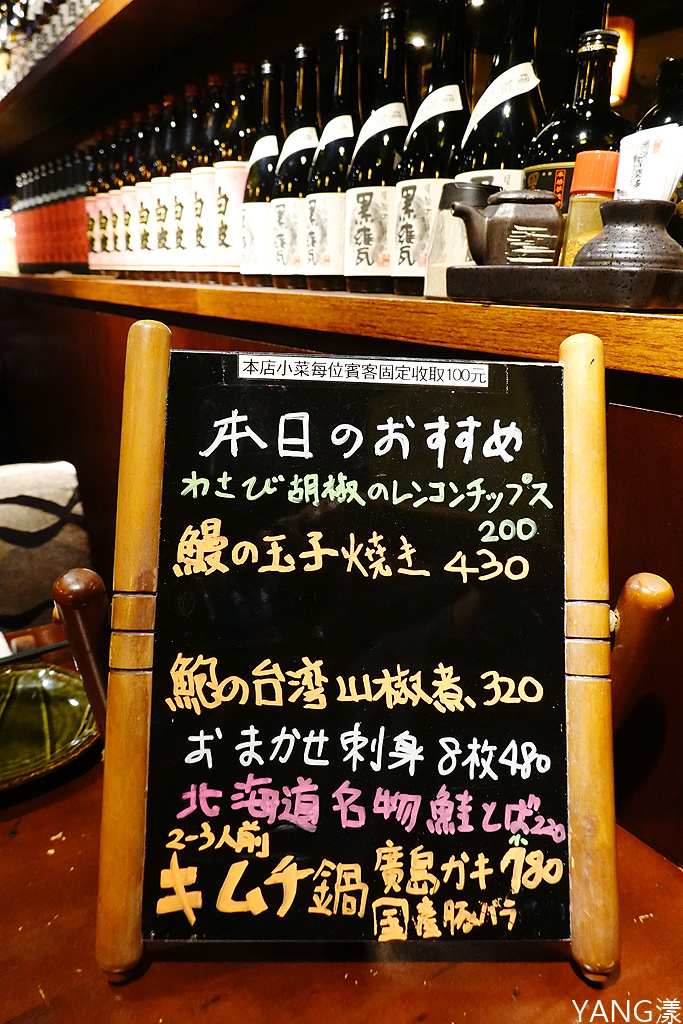 白波
白波
白波
白波
黒甕
黒甕
黒甕
本店小菜每位賓客固定收取100元
本日のおすすめ
わさび胡椒のレンコンチップス
200
鰻の玉子焼き 430
鮑の台湾山椒煮、320
おまかせ刺身 8枚480
北海道名物鮭とば220
2-3人前
キムチ鍋 廣島ガキ 小780
国産豚バラ
YANG漾